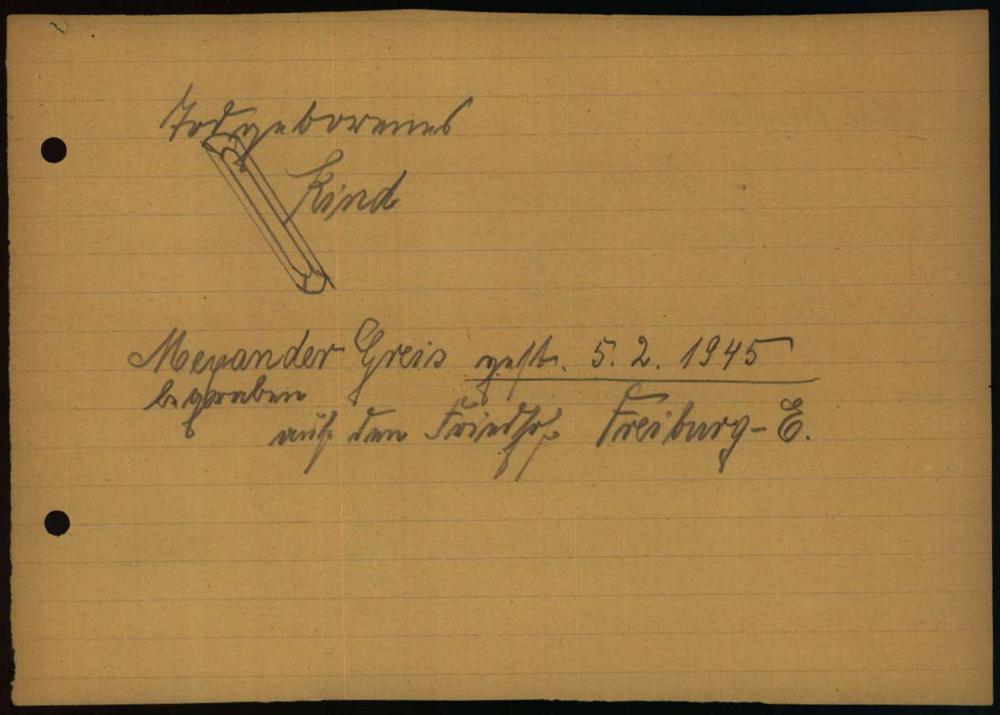 Todgeborenes
Kind
Mexander Greis gest. 5. 2. 1945
begraben
auf den Friedhof Freiburg-E.